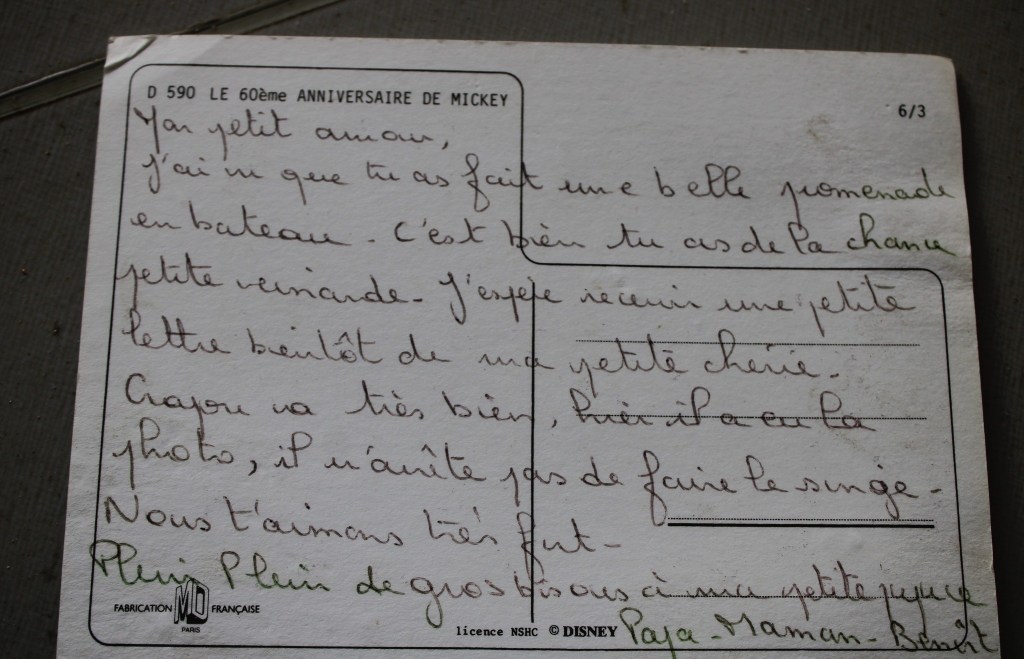 D 590 LE 60ème ANNIVERSAIRE DE MICKEY
6/3
Mon petit amour,
j'ai vu que tu as fait une belle promenade
en bateau. C'est bien tu as de la chance
petite veinarde. J'espère recevoir une petite
lettre bientôt de ma petite chérie.
va très bien, hier il a eu la
photo, il n'arrête pas de faire le singe.
Nous t'aimons très fort.
Plein Plein de gros bisous à ma petite puce
Papa - Maman - Benoît
FABRICATION MD FRANÇAISE
PARIS
licence NSHC © DISNEY